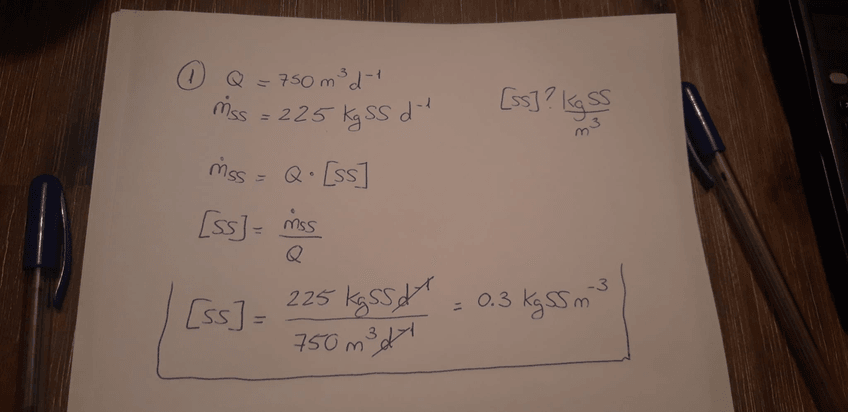 ① Q = 750 m³d⁻¹
ṁss = 225 kgSS d⁻¹
[SS]? kgSS/m³
ṁss = Q · [SS]
[SS] = ṁss/Q
[SS] = 225 kgSS d⁻¹/750 m³d⁻¹ = 0.3 kgSS m⁻³